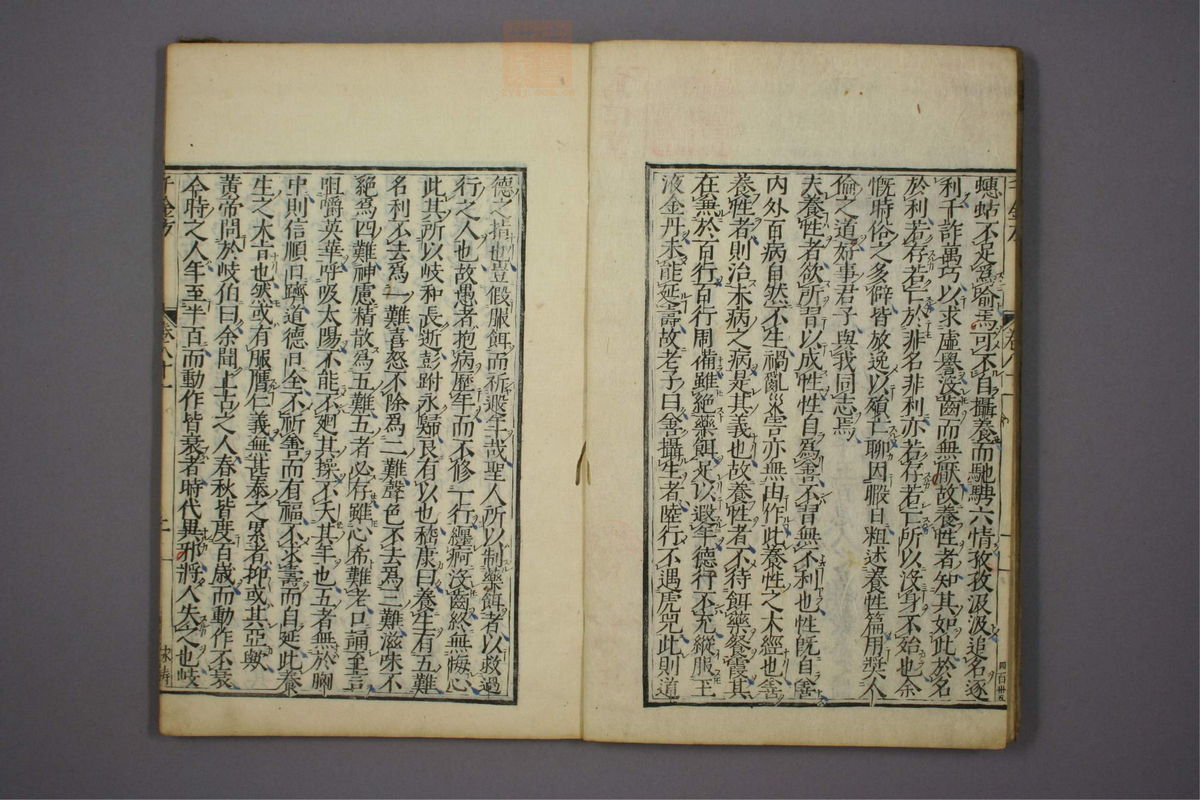 蟪蛄不足為喻焉可不自攝養而馳騁六情孜孜汲汲追名逐
利千詐萬巧以求虛譽沒齒而無厭故養性者知其如此於名
於利若存若亡於非名非利亦若存若亡所以沒身不殆也余
慨時俗之多僻皆放逸以殞亡聊因暇日粗述養性篇用奬人
倫之道好事君子與我同志焉
夫養性者欲所習以成性性自為善不習無不利也性既自善
內外百病自然不生禍亂災害亦無由作此養性之大經也善
養性者則治未病之病是其義也故養性者不待餌藥餐霞其
在無於百行百行周備雖絕藥餌足以遐年德行不充縱服玉
液金丹未能延壽故老子曰善攝生者陸行不遇虎兕此則道
德之指也豈假服餌而祈遐年哉聖人所以制藥餌者以救過
行之人也故愚者抱病歷年而不修一行纏痾沒齒終無悔心
此其所以岐和長逝彭跗永歸良有以也嵇康曰養生有五難
名利不去為一難喜怒不除為二難聲色不去為三難滋味不
絕為四難神慮精散為五難五者必存雖心希難老口誦至言
咀嚼英華呼吸太陽不能不廻其操不夭其年也五者無於胸
中則信順日躋道德日全不祈善而有福不求壽而自延此養
生之大旨也然或有服膺仁義無甚泰之累者抑或其亞歟
黃帝問於岐伯曰余聞上古之人春秋皆度百歲而動作不衰
今時之人年至半百而動作皆衰者時代異邪將人失之也岐
千金方
卷八十一
二